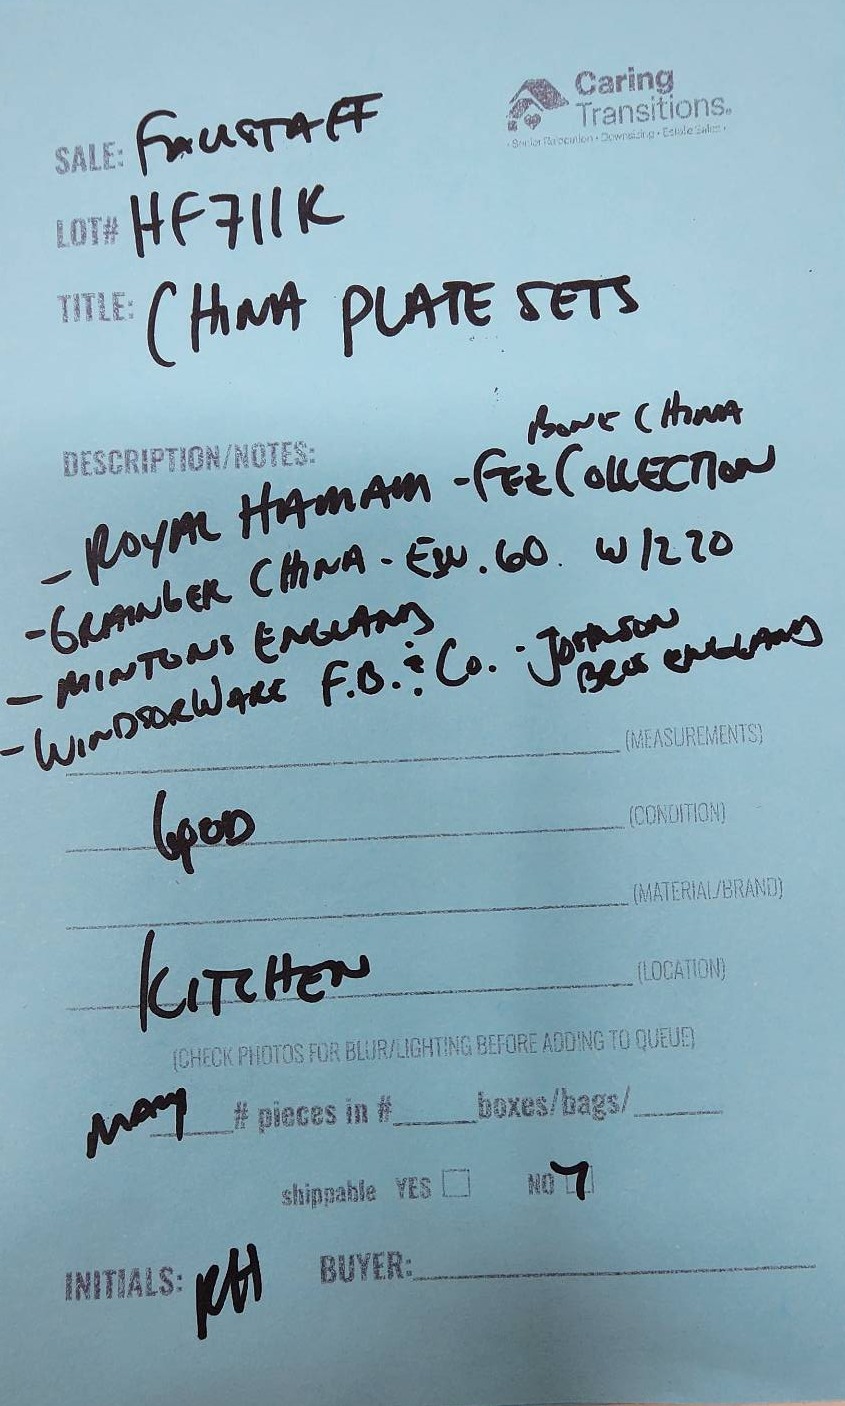 Caring
Transitions.
• Senior Relocation • Downsizing • Estate Sales •
SALE: FALLSTAFF
LOT# HF711K
TITLE: CHINA PLATE SETS
DESCRIPTION/NOTES:
BONE CHINA
- ROYAL HAMAM - FEZ COLLECTION
- GRAINGER CHINA - EDW. 60. W/220
- MINTONS ENGLAND
- WINDSORWARE F.B. & Co. - JOHNSON
BROS ENGLAND
(MEASUREMENTS)
GOOD (CONDITION)
(MATERIAL/BRAND)
KITCHEN (LOCATION)
(CHECK PHOTOS FOR BLUR/LIGHTING BEFORE ADDING TO QUEUE)
MANY # pieces in # boxes/bags/
shippable YES NO
INITIALS: RH BUYER: